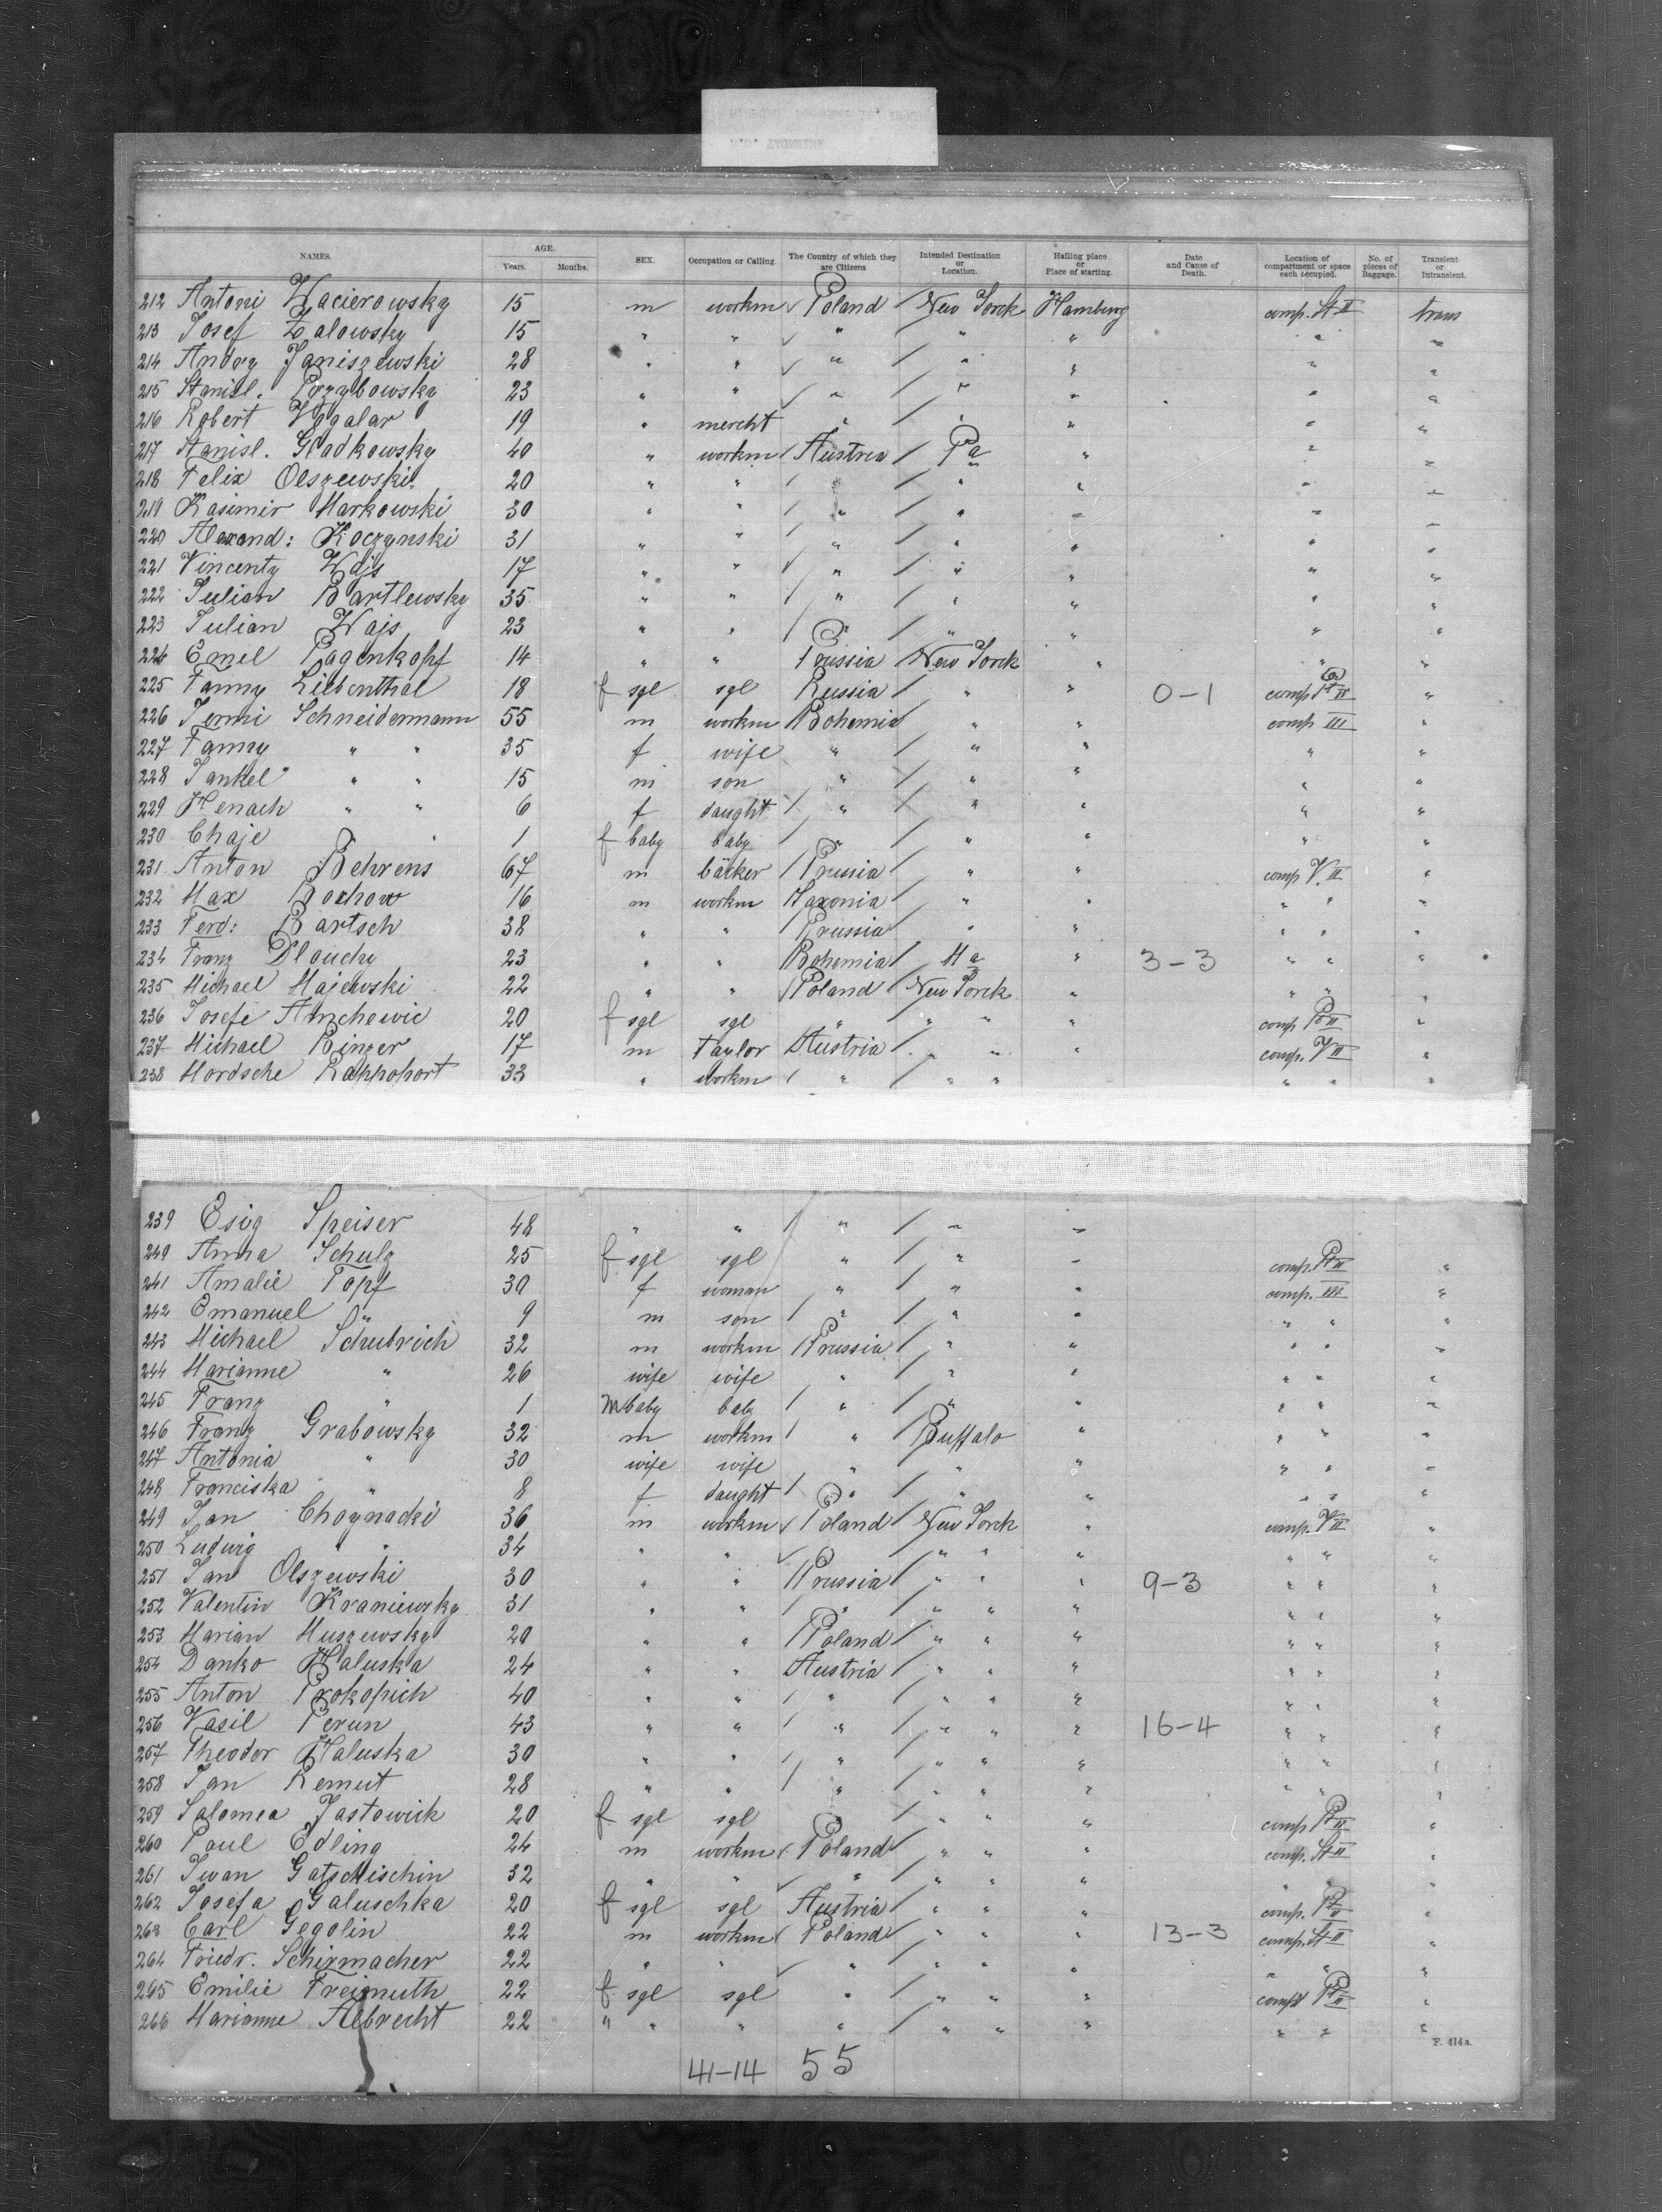 NAMES. AGE. Years. Months. SEX. Occupation or Calling. The Country of which they are Citizens Intended Destination or Location. Hailing place or Place of starting. Date and Cause of Death. Location of compartment or space each occupied. No. of pieces of Baggage. Transient or Intransient.
212 Antoni Wacierowsky 15 m workm Poland New Yorck Hamburg comp. St II trans
213 Josef Zalowsky 15 " " " " " " "
214 Andrz Janiszewski 28 " " " " " " "
215 Stanisl. Przybowsky 23 " " " " " " "
216 Robert Vogalar 19 " mercht " " " " "
217 Stanisl. Gladkowsky 40 " workm Austria Pa " " "
218 Felix Olszewski. 20 " " " " " "
219 Kasimir Markowski 30 " " " " " " "
220 Alexand: Koczynski 31 " " " " " " "
221 Vincenty Wajs 17 " " " " " " "
222 Julian Bartlewsky 35 " " " " " " "
223 Julian Wajs 23 " " " " " " "
224 Emel Pagenkopf 14 " " Prussia New Yorck " " "
225 Fanny Liebenthal 18 f sgl sgl Russia " " 0-1 comp. Pt II "
226 Jermi Schneidermann 55 m workm Bohemia " " comp III "
227 Fanny " " 35 f wife " " " " "
228 Jankel " " 15 m son " " " " "
229 Henach " " 6 f daught " " " " "
230 Chaje " " 1 f baby baby " " " " "
231 Anton Behrens 67 m bäcker Prussia " " comp V. II "
232 Max Rochow 16 m workm Saxonia " " " " "
233 Ferd: Bartsch 38 " " Prussia " " " " "
234 Franz Dlouchy 23 " " Bohemia Ma " 3-3 " " "
235 Michael Majewski 22 " " Poland New Yorck " " " "
236 Josefe Anchewic 20 f sgl sgl " " " " comp Pt II "
237 Michael Binzer 17 m Taylor Austria " " " comp. V II "
238 Mordsche Rappoport 33 " workm " " " " " "
239 Esig Speiser 48 " " " " "
240 Anna Schulz 25 f sgl sgl " " " comp. Pt II "
241 Amalie Topf 30 f woman " " " comp. III "
242 Emanuel " 9 m son " " " " " "
243 Michael Schubrich 32 m workm Prussia " " " " "
244 Marianne " 26 wife wife " " " " " "
245 Franz " 1 m baby baby " " " " " "
246 Franz Grabowsky 32 m workm " Buffalo " " " "
247 Antonia " 30 wife wife " " " " " "
248 Franciska " 8 f daught " " " " " "
249 Jan Choynacki 36 m workm Poland New Yorck " comp. V II "
250 Ludwig " " 34 " " " " " " " " "
251 Jan Olszewski 30 " " Prussia " " " 9-3 " " "
252 Valentin Kraniewzky 31 " " " " " " " " "
253 Marian Muszewsky 20 " " Poland " " " " " "
254 Danko Haluska 24 " " Austria " " " " " "
255 Anton Prokopich 40 " " " " " " " " "
256 Vasil Perun 43 " " " " " " 16-4 " " "
257 Theodor Haluska 30 " " " " " " " " "
258 Jan Remut 28 " " " " " " " " "
259 Salomea Jastowick 20 f sgl sgl " " " comp Pt II "
260 Paul Edling 24 m workm Poland " " " comp. St II "
261 Iwan Gatschischin 32 " " " " " " " " "
262 Josefa Galuschka 20 f sgl sgl Austria " " " comp. Pt II "
263 Carl Gogolin 22 m workm Poland " " " 13-3 comp. St II "
264 Friedr. Schirmacher 22 " " " " " " " " "
265 Emilie Freimuth 22 f sgl sgl " " " " comp Pt II "
266 Marianne Albrecht 22 " " " " " " " " " "
F. 414a.
41-14 55